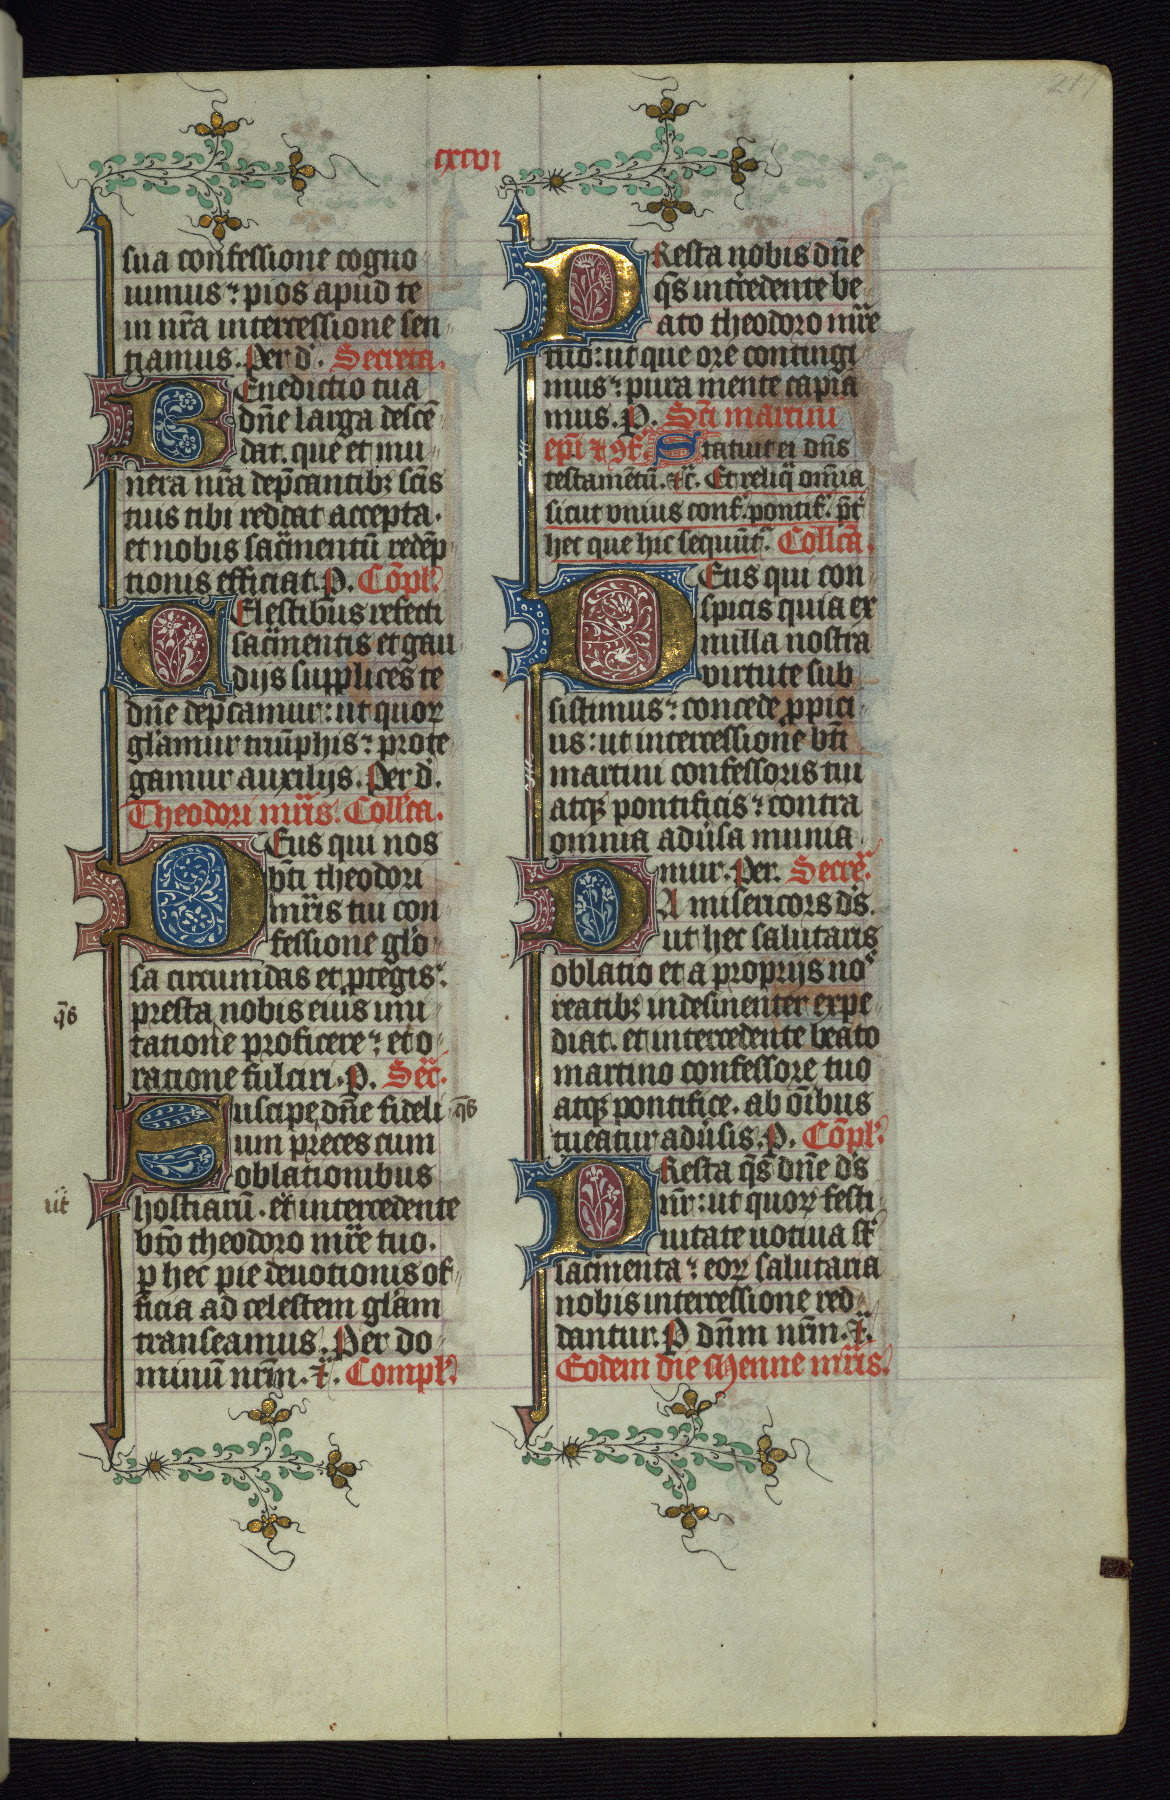 cxcvi
sua confessione cogno
uimus: pios apud te
in nr̄a intercessione sen
tiamus. Per d'. Secreta.
Benedictio tua
dn̄e larga descē
dat. que et mu
nera nr̄a dep̄cantibꝫ sc̄is
tuis tibi reddat accepta.
et nobis sac̄mentū redēp
tionis efficiat. P. Cōpl'.
Celestibus refecti
sac̄mentis et gau
dijs supplices te
dn̄e dep̄camur: ut quoꝝ
gl'amur triūphis: prote
gamur auxilijs. Per d'.
Theodori mr̄is. Coll'ca.
Deus qui nos
bt̄i theodori
mr̄is tui con
fessione gl'o
sa circumdas et ꝓtegis:
presta nobis eius imi
q̄s
tatione proficere: et o
ratione fulciri. P. Secr̄.
Suscipe dn̄e fideli q̄s
um preces cum
oblationibus
ut
hostiarū. et intercedente
bt̄o theodoro mr̄e tuo.
p hec pie deuotionis of
ficia ad celestem gl'am
transeamus. Per do
minū nr̄m. ⁊c̄. Compl'.
Presta nobis dn̄e
q̄s int̄cedente be
ato theodoro mr̄e
tuo: ut que ore contingi
mus: pura mente capia
mus. P. Sc̄i martini
epī ⁊ ꝯf. Statuit ei dn̄s
testamētū. ⁊c̄. Et reliq̄ om̄ia
sicut vnius conf. pontif. p̄t
hec que hic sequūt'. Coll'ca.
Deus qui con
spicis quia ex
nulla nostra
virtute sub
sistimus: concede ꝓpici
us: ut intercessione bt̄i
martini confessoris tui
atqꝫ pontificis: contra
omnia adūsa munia
mur. Per. Secre'.
Da misericors d's.
ut hec salutaris
oblatio et a proprijs nos
reatibꝫ indesinenter expe
diat. et intercedente beato
martino confessore tuo
atqꝫ pontifice. ab oībus
tueatur adūsis. P. Cōpl'.
Presta q̄s dn̄e d's
nr̄: ut quoꝝ festi
uitate uotiua st̄
sac̄menta: eoꝝ salutaria
nobis intercessione red
dantur. P dn̄m nr̄m. ⁊c̄.
Eodem die Menne mr̄is.